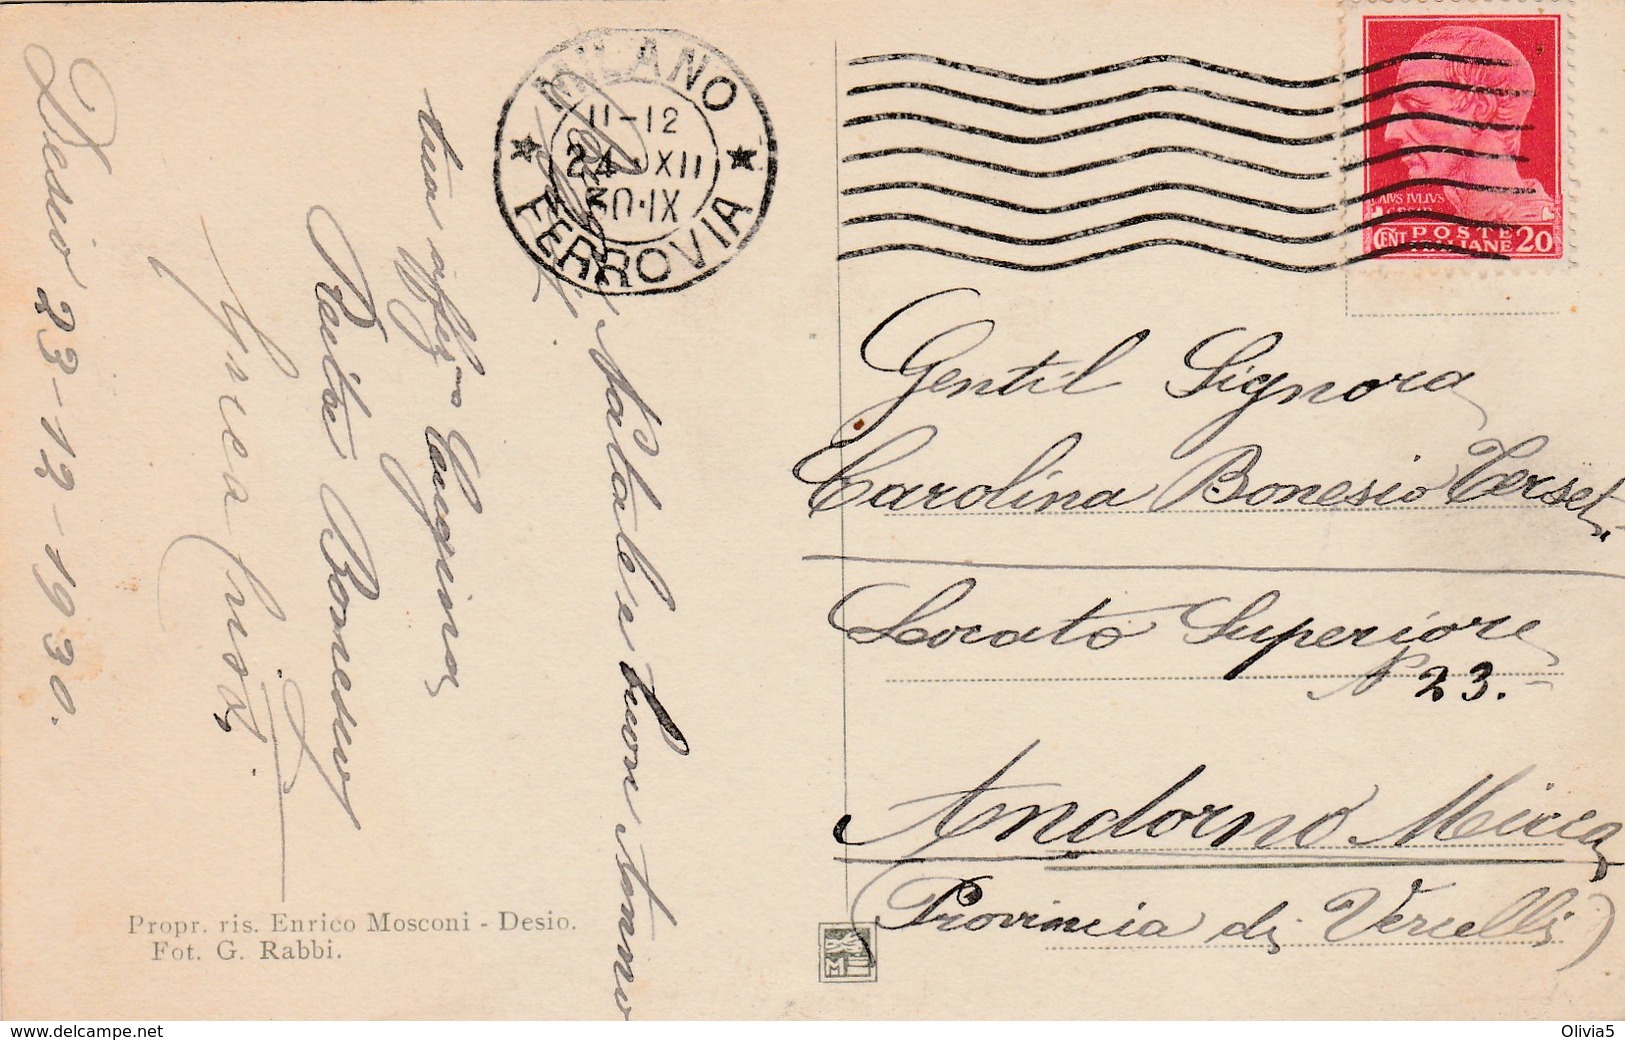 MILANO
11-12
24 XII
30·IX
FERROVIA
CAIVS IVLIVS
POSTE
CENT ITALIANE 20
Gentil Signora
Carolina Bonesio
Locato Superiore
N 23.-
Andorno Micca
(Provincia di Vercelli)
Natale e buon Anno
tua affez.ma Cuggina
Bonesio
Desio 23-12-1930.
Propr. ris. Enrico Mosconi - Desio.
Fot. G. Rabbi.
M
www.delcampe.net
Olivia5